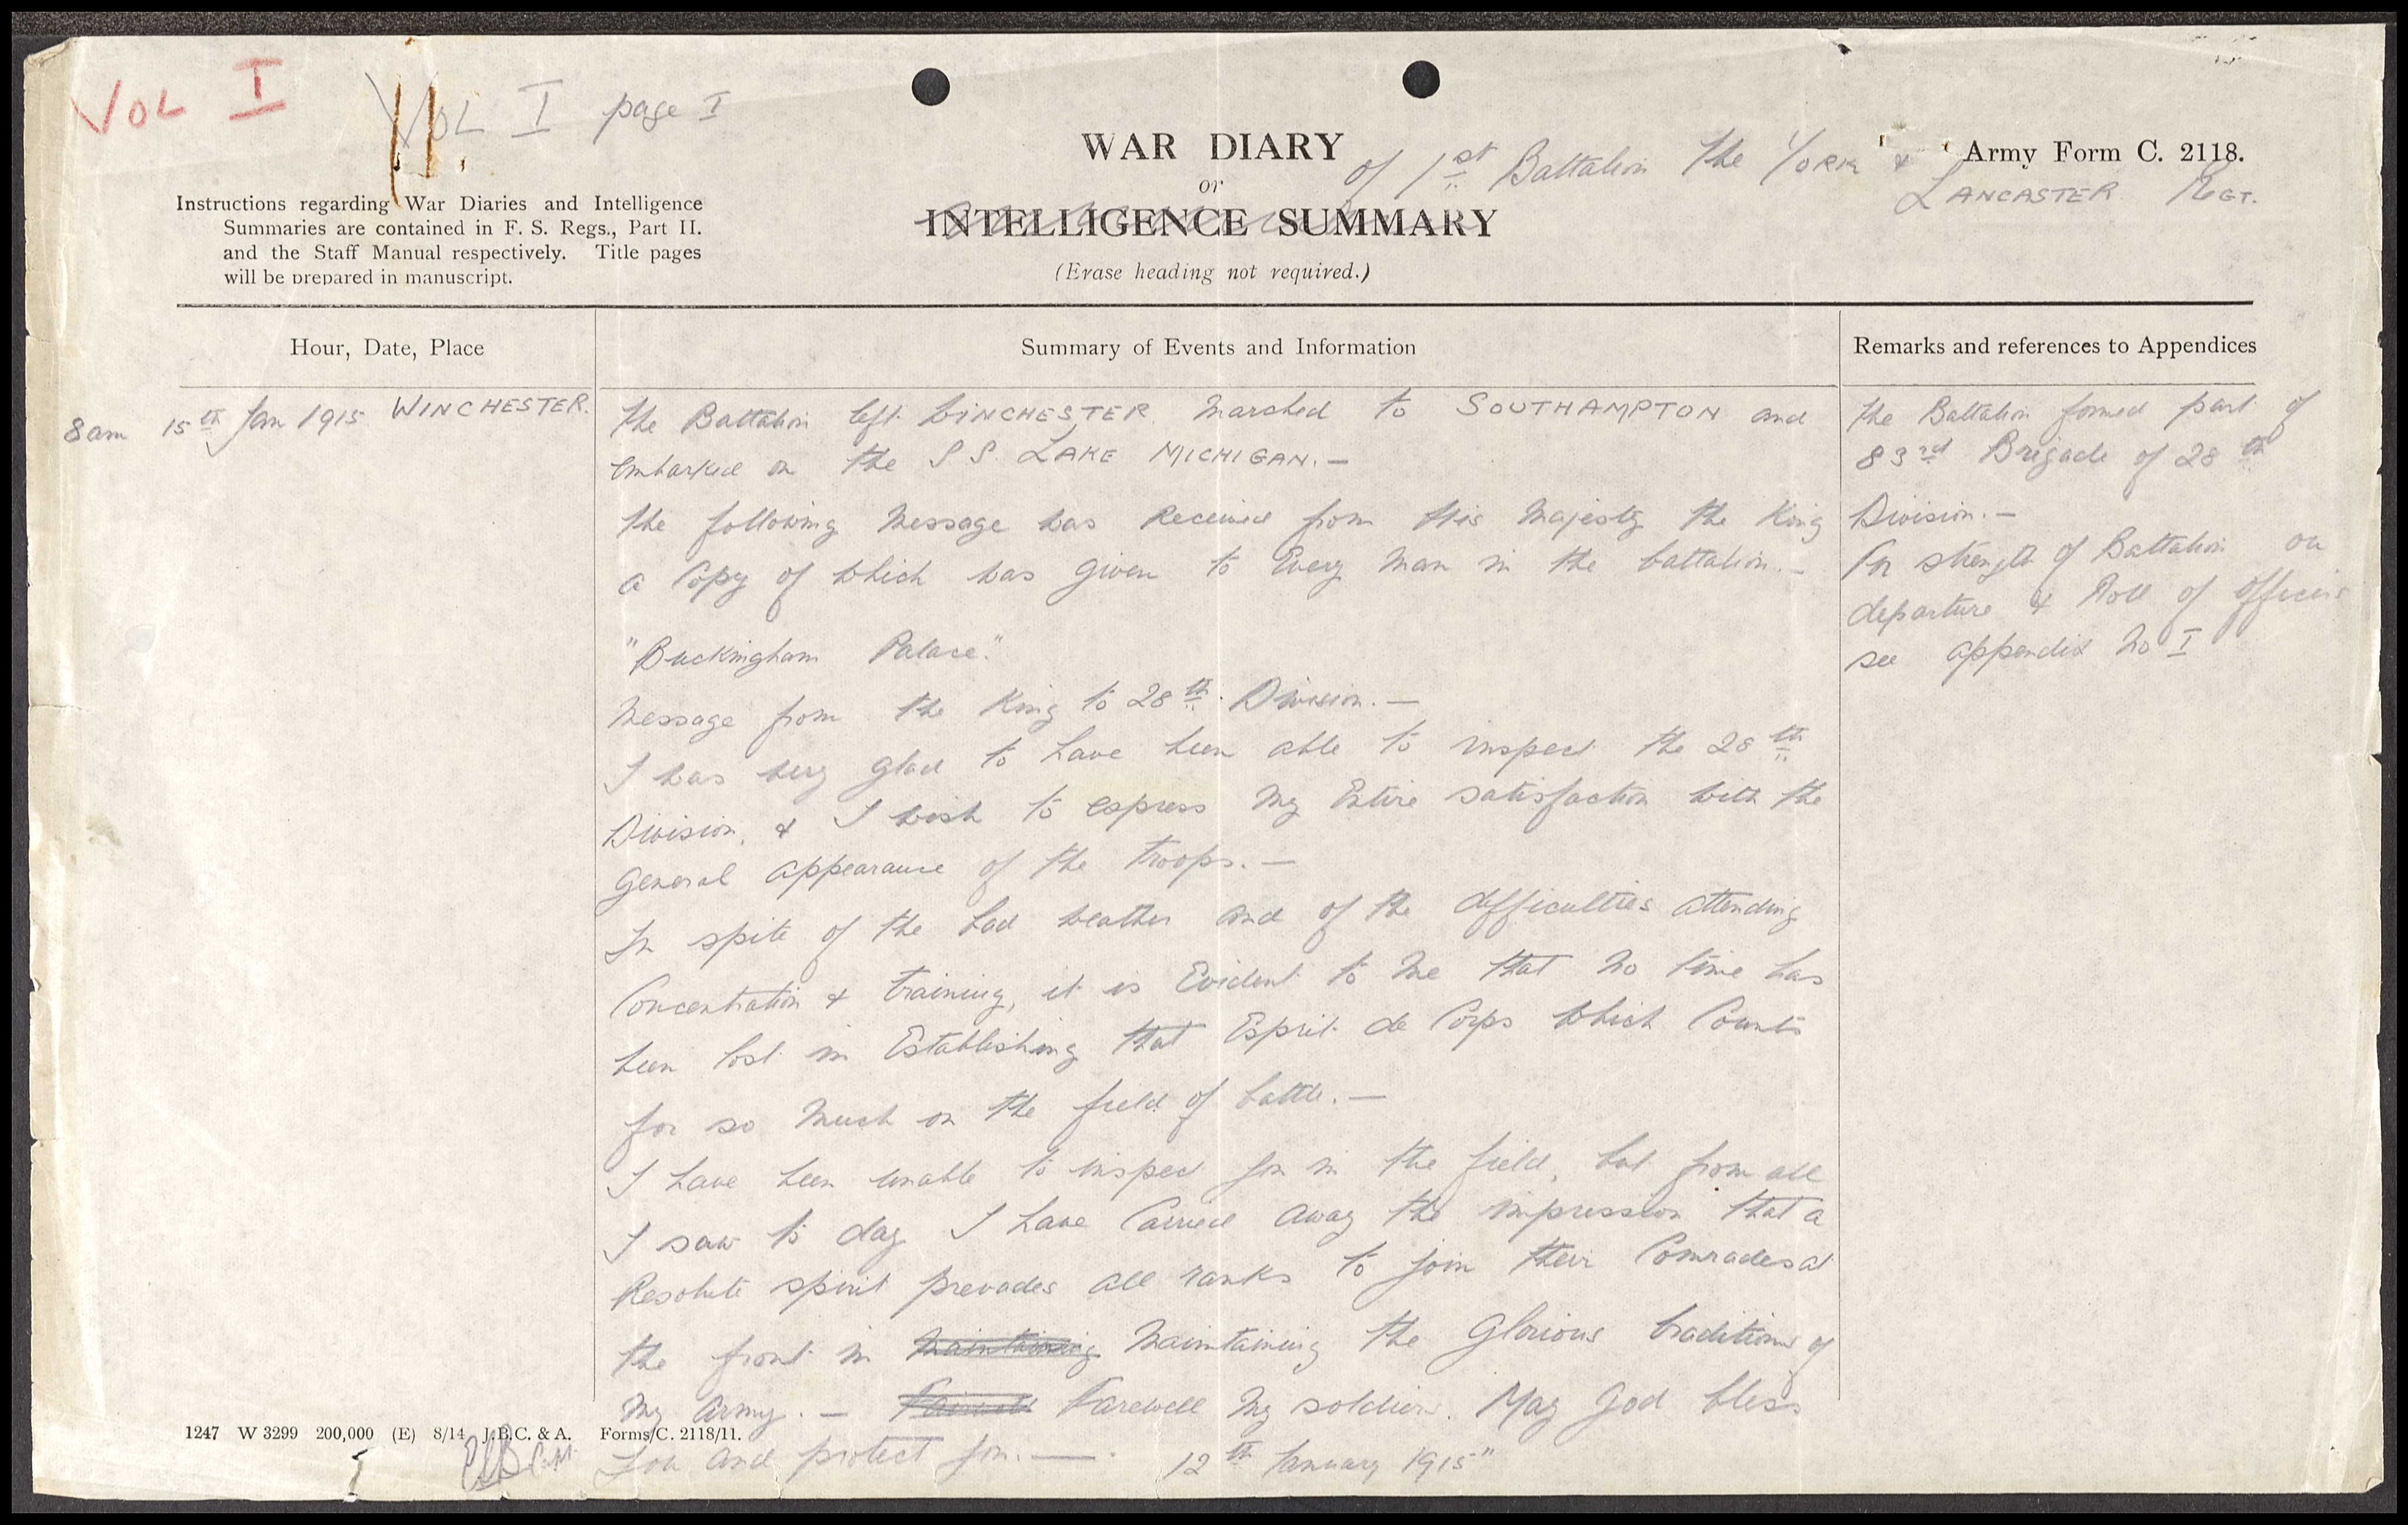 VOL I
VOL I page I
WAR DIARY
of 1st Battalion The YORK &
Army Form C. 2118.
LANCASTER REGT.
or
INTELLIGENCE SUMMARY
(Erase heading not required.)
Instructions regarding War Diaries and Intelligence
Summaries are contained in F. S. Regs., Part II.
and the Staff Manual respectively. Title pages
will be prepared in manuscript.
Hour, Date, Place
Summary of Events and Information
Remarks and references to Appendices
8am 15th Jan 1915 WINCHESTER.
The Battalion left WINCHESTER. Marched to SOUTHAMPTON and
Embarked on the S S. LAKE MICHIGAN. —
The following Message was Received from His Majesty the King
a Copy of which was given to Every man in the battalion. —
"Buckingham Palace."
Message from the King to 28th Division. —
I was very glad to have been able to inspect the 28th
Division, & I wish to express my Entire satisfaction with the
General appearance of the troops. —
In spite of the bad weather and of the difficulties attending
Concentration & training, it is Evident to me that no time has
been lost in Establishing that Esprit de Corps which Counts
for so much on the field of battle. —
I have been unable to inspect you in the field, but from all
I saw to day I have Carried away the impression that a
Resolute spirit prevades all ranks to join their Comrades at
the front in maintaining Maintaining the Glorious traditions of
My Army. — Farewell Farewell My soldiers. May God bless
You and protect you. — 12th January 1915"
The Battalion formed part of
83rd Brigade of 28th
Division. —
For strength of Battalion on
departure & Roll of Officers
see appendix No I
1247 W 3299 200,000 (E) 8/14 J.B.C. & A. Forms/C. 2118/11.